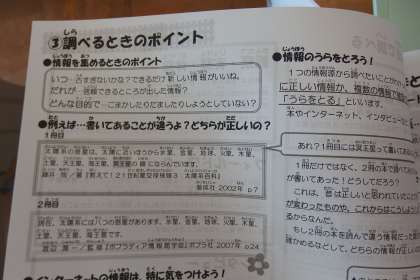 ③調べるときのポイント
●情報を集めるときのポイント
いつ…古すぎないかな？できるだけ新しい情報がいいね。
だれが…信頼できるところが出した情報？
どんな目的で…ごまかしたりだましたりしようとしていない？
●例えば…書いてあることが違うよ？どちらが正しいの？
1冊目
太陽系の惑星は、太陽に近いほうから水星、金星、地球、火星、木星、
土星、天王星、海王星、冥王星の順にならんでいます。
集英社 2002年 p7
2冊目
現在、太陽系には八つの惑星があります。水星、金星、地球、火星、木星、
土星、天王星、海王星です。
渡部 潤一／監修『ポプラディア情報館宇宙』ポプラ社 2007年 p24
インターネットの情報は、特に気をつけよう！
●情報のうらをとろう！
1つの情報源から調べたいことがわかっ
に正しい情報か、複数の情報で確認
「うらをとる」といいます。
本やインターネット、インタビューに
あれ？1冊目には冥王星って書いてあ
1冊目だけではなく、2冊の本で調べた
が書いてあった！どうしてだろう？
これは、昔は正しいと思われていたこと
が変わったものや、これからはこうしよう
るからなんだ。
もし2冊の本を読んで違う情報だった
確かめるなどして、どちらの情報が正し